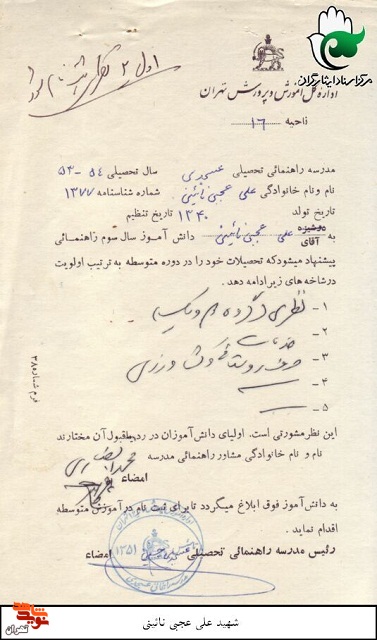 مرکز اسناد ایثارگران
اداره کل آموزش و پرورش تهران
ناحیه ۱۶
مدرسه راهنمائی تحصیلی عسجدی سال تحصیلی ۵۴ - ۵۳
نام و نام خانوادگی علی عجبی نائینی شماره شناسنامه ۱۳۷۷
تاریخ تولد ۱۳۴۰ تاریخ تنظیم
به دوشیزه آقای علی عجبی نائینی دانش آموز سال سوم راهنمائی
پیشنهاد میشود که تحصیلات خود را در دوره متوسطه به ترتیب اولویت
در شاخه های زیر ادامه دهد.
۱ - نظری
۲ - خدمات
۳ - حرف روستائی و کشاورزی
۴ -
۵ -
این نظر مشورتی است. اولیای دانش آموزان در رد یا قبول آن مختارند
نام و نام خانوادگی مشاور راهنمائی مدرسه
امضاء
به دانش آموز فوق ابلاغ میگردد تا برای ثبت نام در آموزش متوسطه
اقدام نماید.
رئیس مدرسه راهنمائی تحصیلی امضاء
۱۳۵۱
فرم شماره ۳۸
نوید شاهد
تهران
شهید علی عجبی نائینی